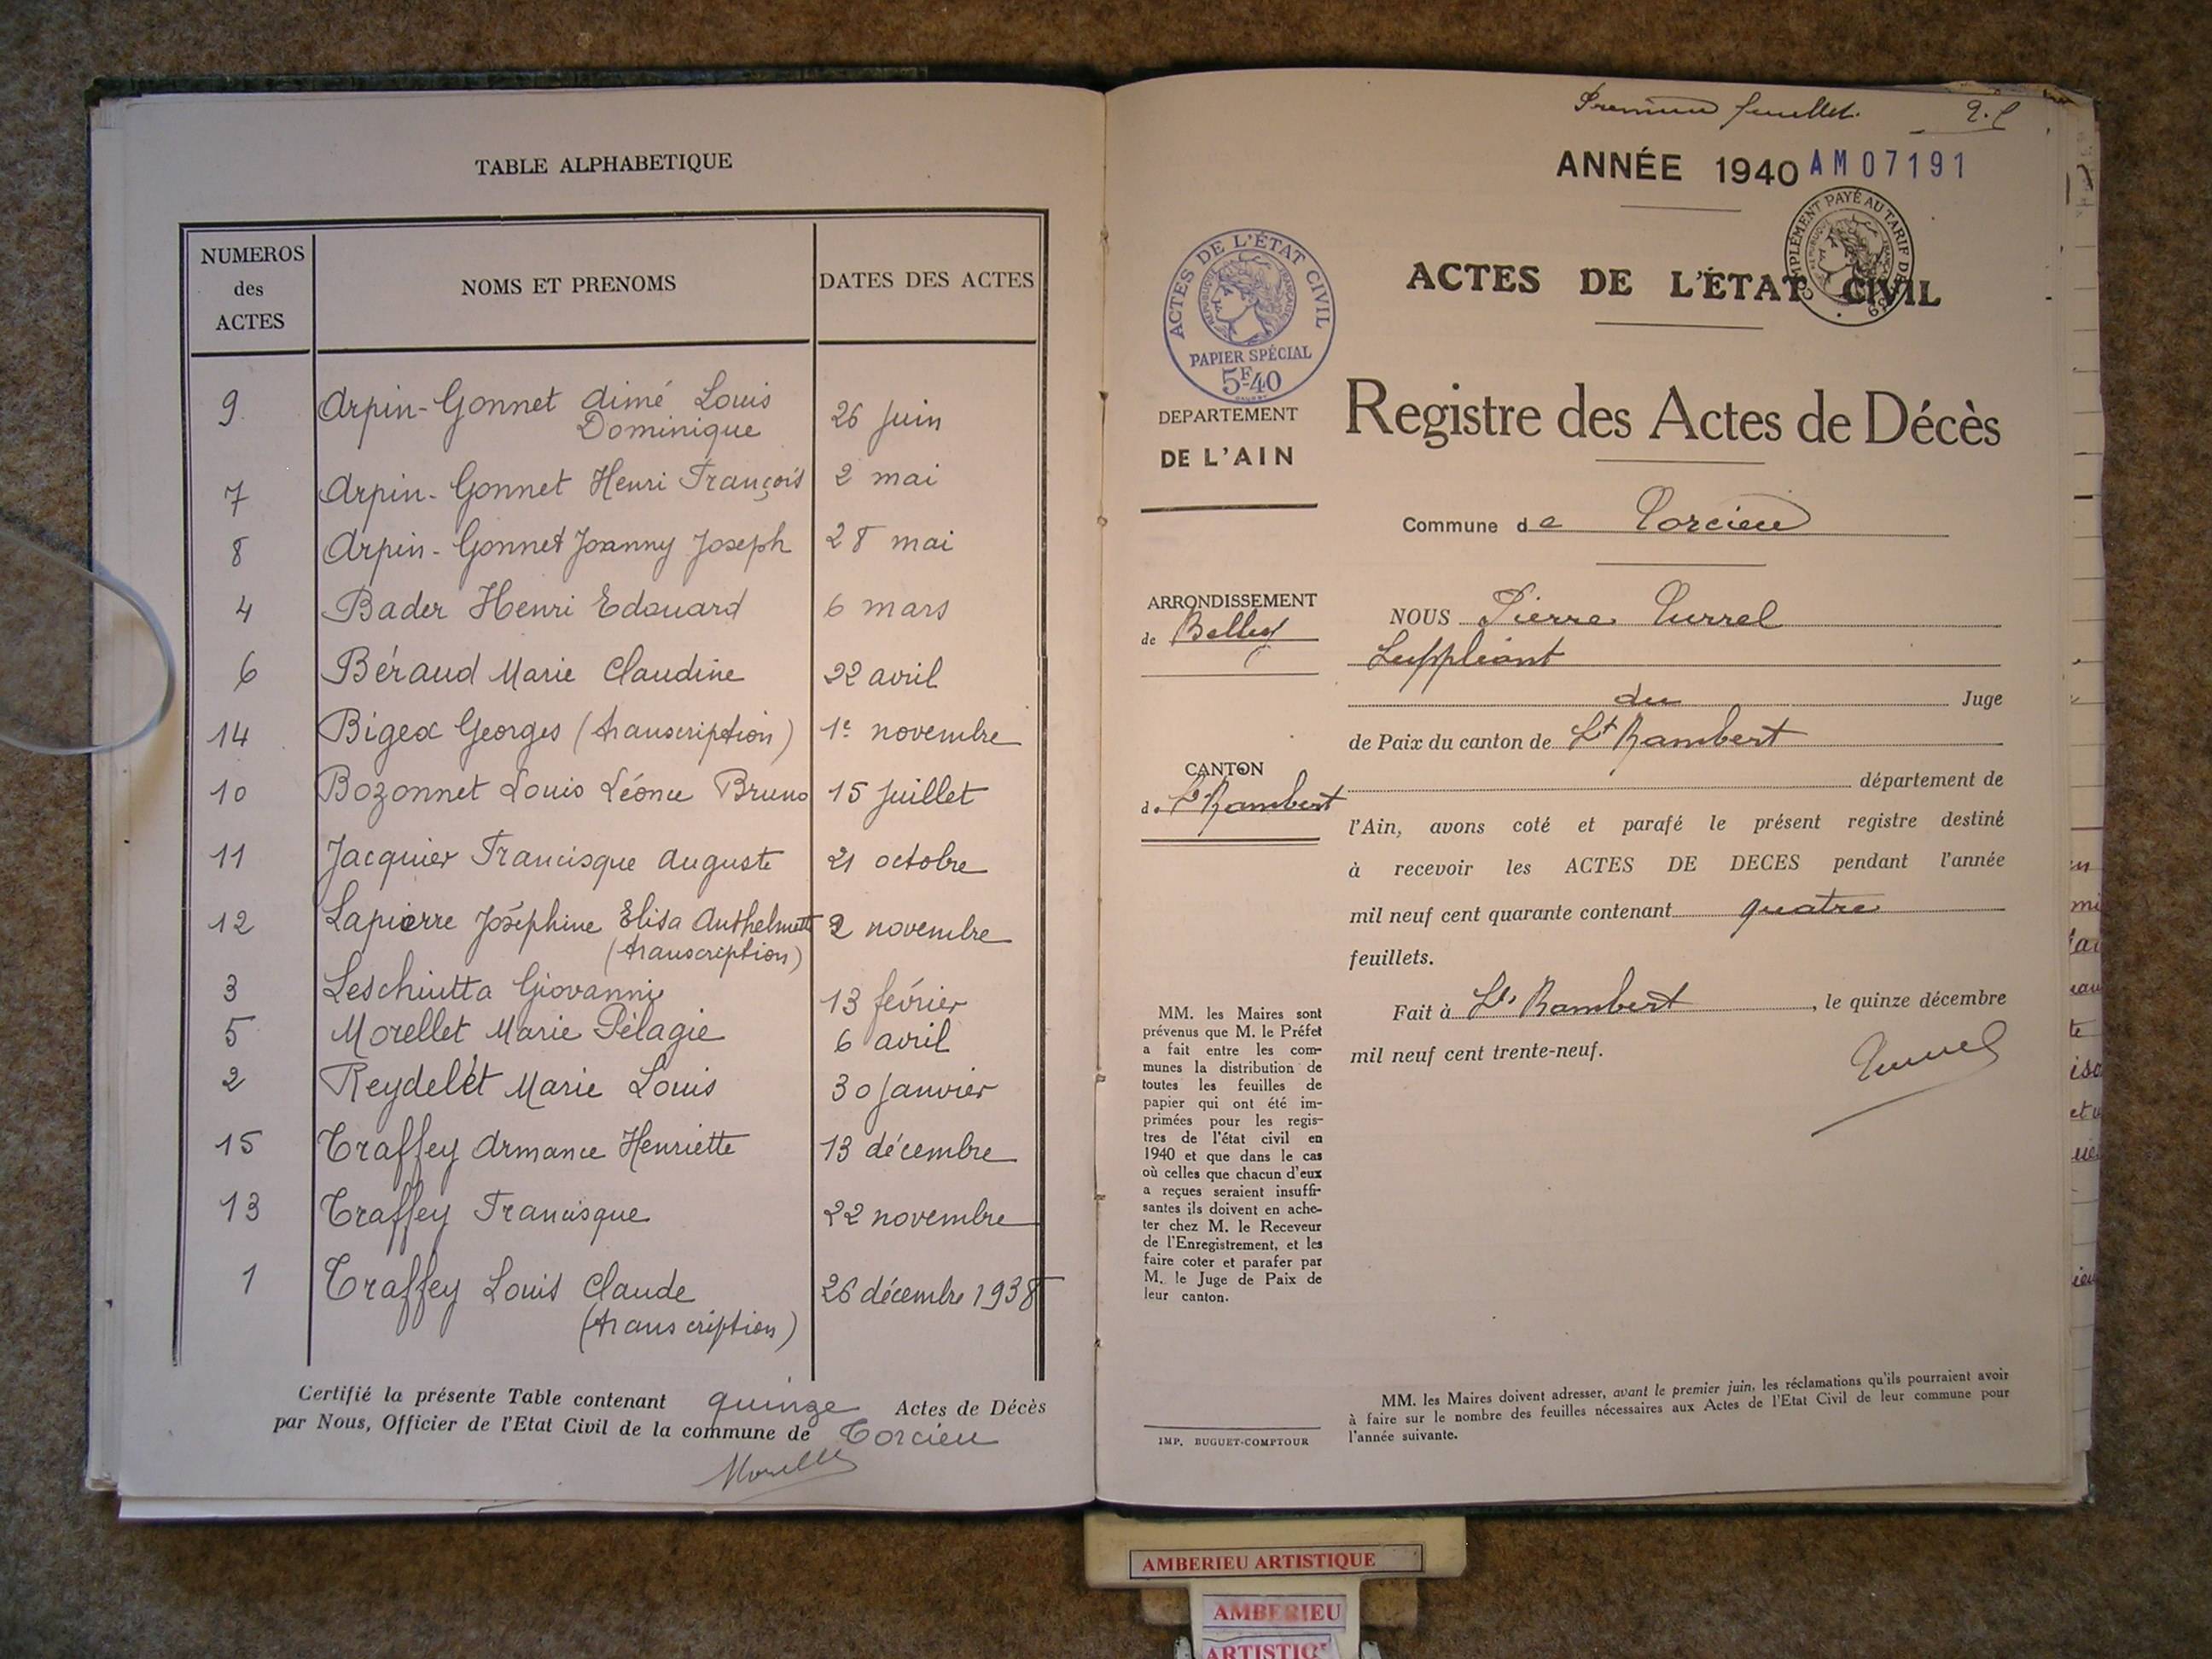 TABLE ALPHABETIQUE
NUMEROS des ACTES
NOMS ET PRENOMS
DATES DES ACTES
9 Arpin-Gonnet Aimé Louis Dominique 26 Juin
7 Arpin-Gonnet Henri François 2 mai
8 Arpin-Gonnet Joanny Joseph 28 mai
4 Bader Henri Edouard 6 mars
6 Béraud Marie Claudine 22 avril
14 Bigex Georges (transcription) 1e novembre
10 Bozonnet Louis Léonce Bruno 15 Juillet
11 Jacquier Francisque Auguste 21 octobre
12 Lapierre Joséphine Elisa Anthelmette 2 novembre
(transcription)
3 Leschiutta Giovanni 13 février
5 Morellet Marie Pélagie 6 avril
2 Reydelet Marie Louis 30 Janvier
15 Traffey Armance Henriette 13 décembre
13 Traffey Francisque 22 novembre
1 Traffey Louis Claude 26 décembre 1938
(transcription)
Certifié la présente Table contenant quinze Actes de Décès
par Nous, Officier de l'Etat Civil de la commune de Torcieu
Premier feuillet.
ANNÉE 1940 AM07191
COMPLÉMENT PAYÉ AU TARIF DE
ACTES DE L'ÉTAT CIVIL
RÉPUBLIQUE FRANÇAISE
PAPIER SPÉCIAL
5F40
ACTES DE L'ÉTAT CIVIL
DEPARTEMENT
DE L'AIN
Registre des Actes de Décès
Commune de Torcieu
ARRONDISSEMENT
de Belley
CANTON
de St Rambert
NOUS Pierre Turrel
Suppléant
du Juge
de Paix du canton de St Rambert
département de
l'Ain, avons coté et parafé le présent registre destiné
à recevoir les ACTES DE DECES pendant l'année
mil neuf cent quarante contenant quatre
feuillets.
Fait à St Rambert, le quinze décembre
mil neuf cent trente-neuf.
Turrel
MM. les Maires sont
prévenus que M. le Préfet
a fait entre les com-
munes la distribution de
toutes les feuilles de
papier qui ont été im-
primées pour les regis-
tres de l'état civil en
1940 et que dans le cas
où celles que chacun d'eux
a reçues seraient insuffi-
santes ils doivent en ache-
ter chez M. le Receveur
de l'Enregistrement, et les
faire coter et parafer par
M. le Juge de Paix de
leur canton.
IMP. BUGUET-COMPTOUR
MM. les Maires doivent adresser, avant le premier juin, les réclamations qu'ils pourraient avoir
à faire sur le nombre des feuilles nécessaires aux Actes de l'Etat Civil de leur commune pour
l'année suivante.
AMBERIEU ARTISTIQUE
AMBERIEU
ARTISTIQ